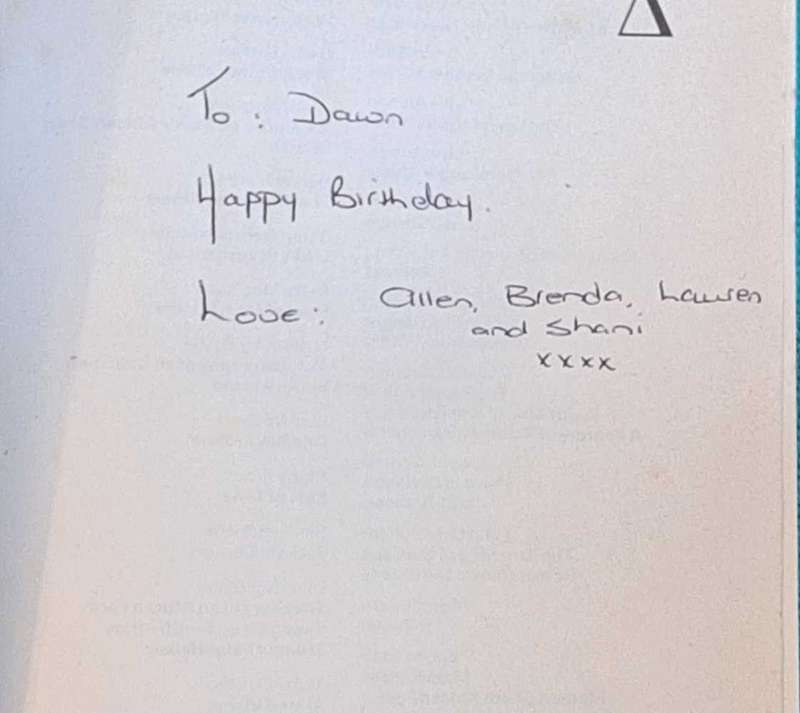 To: Dawn
Happy Birthday.
Love: Allen, Brenda, Lauren
and Shani
xxxx